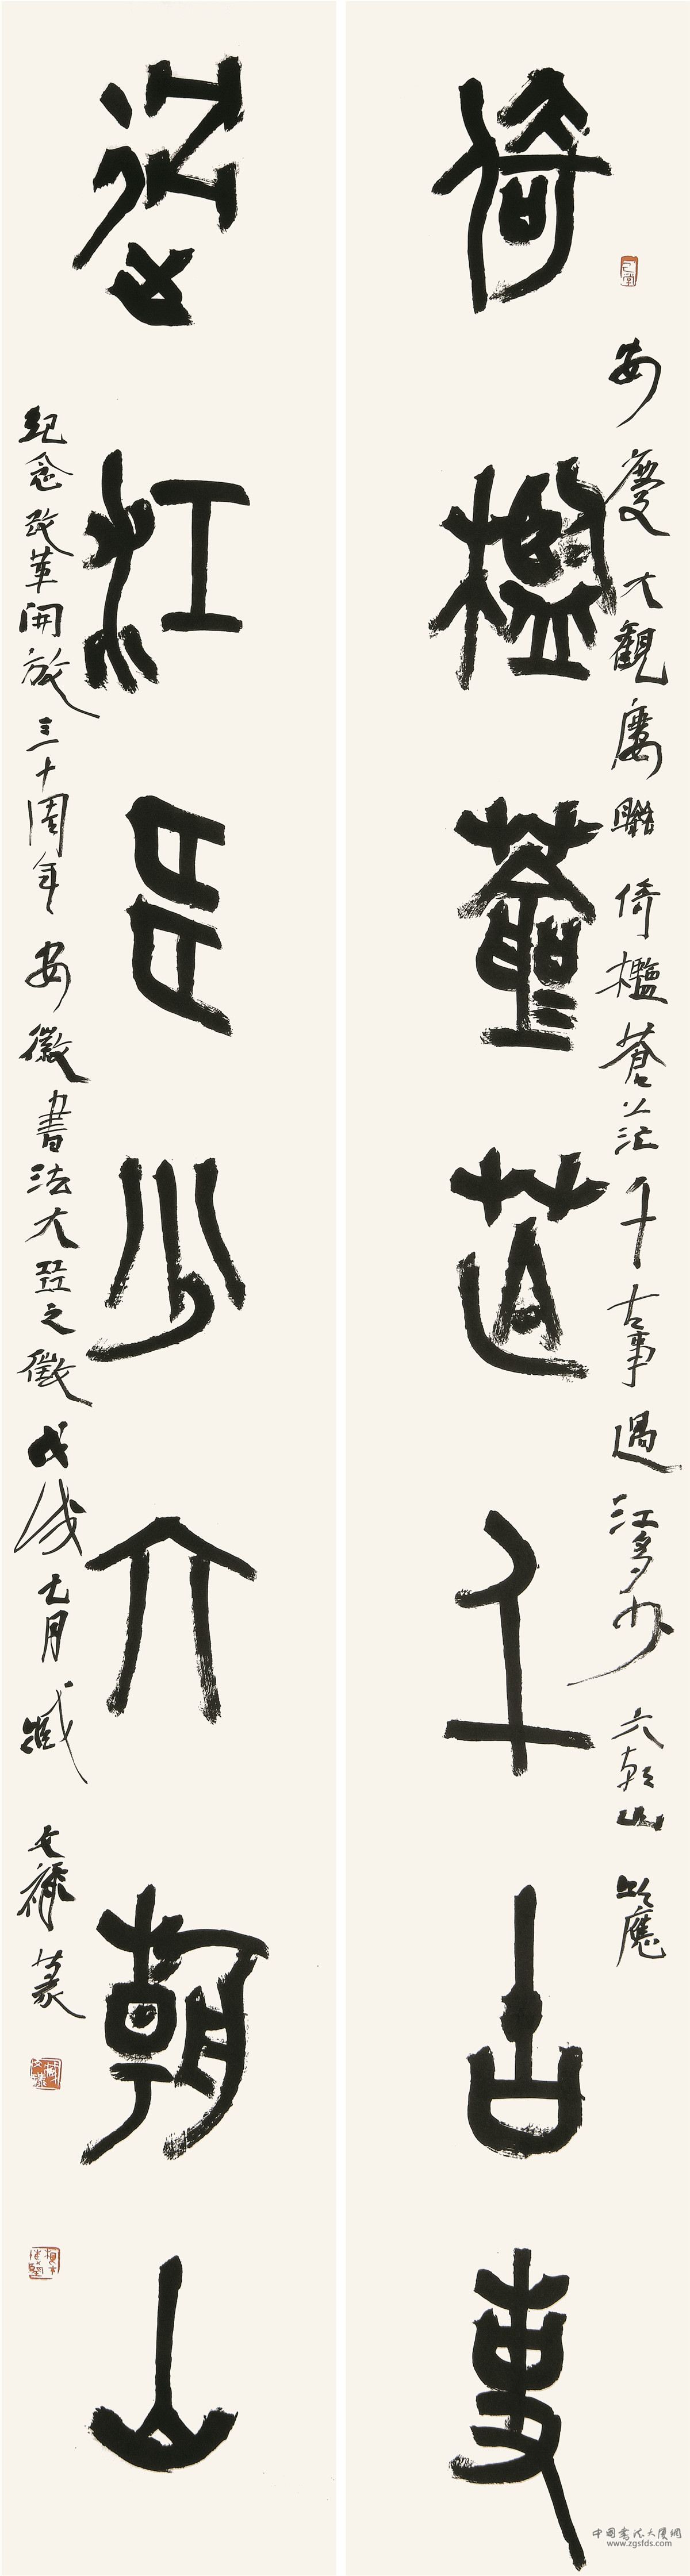 倚檻蒼茫千古事
過江多少六朝山
安慶大觀廔聯 倚檻蒼茫千古事 過江多少 六朝山 以應
紀念改革開放三十周年 安徽書法大展之徵 戊戌七月 臧文穆篆
中國書法大廈網
www.zgsfds.com